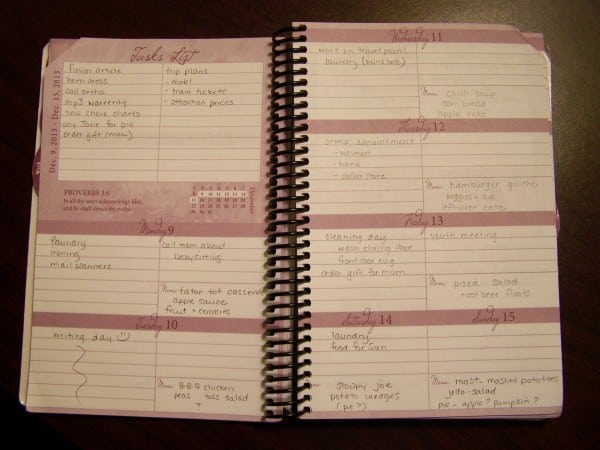 Tasks List
Dec. 9, 2013 - Dec. 15, 2013
Finish article
hem dress
call ortho
mp3 warrenty
new chore charts
pay Jane for pic
order gift (mom)
trip plans
- motel
- train tickets
- attraction prices
PROVERBS 3:6
In all thy ways acknowledge him,
and he shall direct thy paths.
December
Monday 9
laundry
ironing
mail planners
call mom about
babysitting
Menu: tator tot casserole
apple sauce
fruit + cookies
Tuesday 10
writing day
Menu: BBQ chicken
peas toss salad
?
Wednesday 11
work on travel plans
laundry (bunk beds)
Menu: chilli soup
corn bread
apple cake
Thursday 12
ortho appointment
- walmart
- bank
- dollar store
Menu: hamburger
veggies + dip
left-over cake
Friday 13
cleaning day
wash sliding door
front door rug
order gift for mom
youth meeting
Menu: pizza salad
root beer floats
Saturday 14
laundry
food for Sun.
Menu: sloppy joe
potato wedges
(pie?)
Sunday 15
Menu: roast - mashed potatoes
jello-salad
pie - apple? pumpkin?